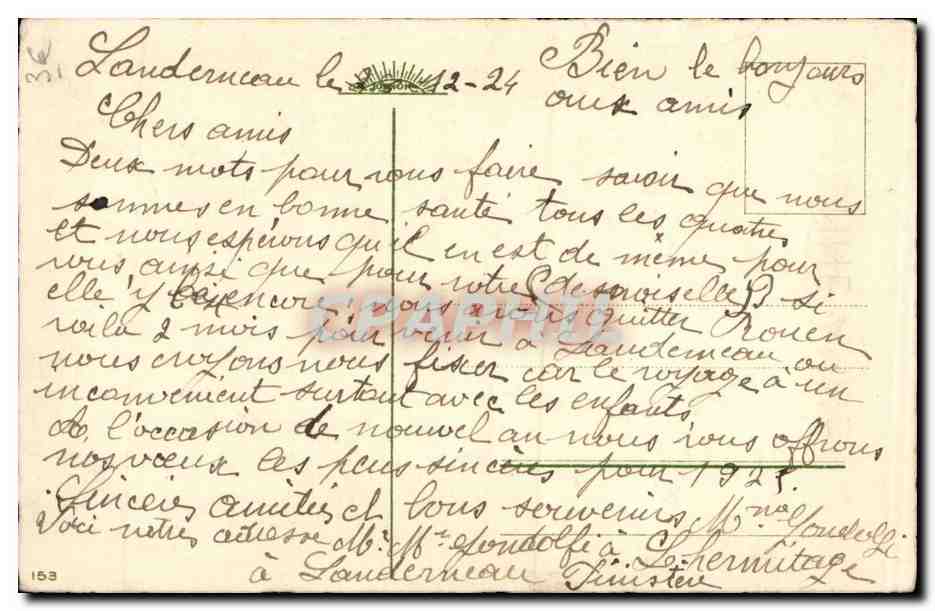 3€
Landerneau le 12-24
Bien le bonjours
aux amis
Chers amis
Deux mots pour vous faire savoir que nous
sommes en bonne santé tous les quatres
et nous espérons qu'il en est de même pour
vous ainsi que pour votre (demoiselle) si
elle y encore nous avons quitter Rouen
voila 2 mois pour venir à Landerneau ou
nous croyons nous fixer car le voyage à un
inconvenient surtout avec les enfants
A l'occasion de nouvel an nous vous offrons
nos voeux les plus sincères pour 1925
Sincères amitiés et bons souvenirs
Voici notre adresse Mr Mme à L'hermitage
à Landerneau Finistère
153
CPAPHIL